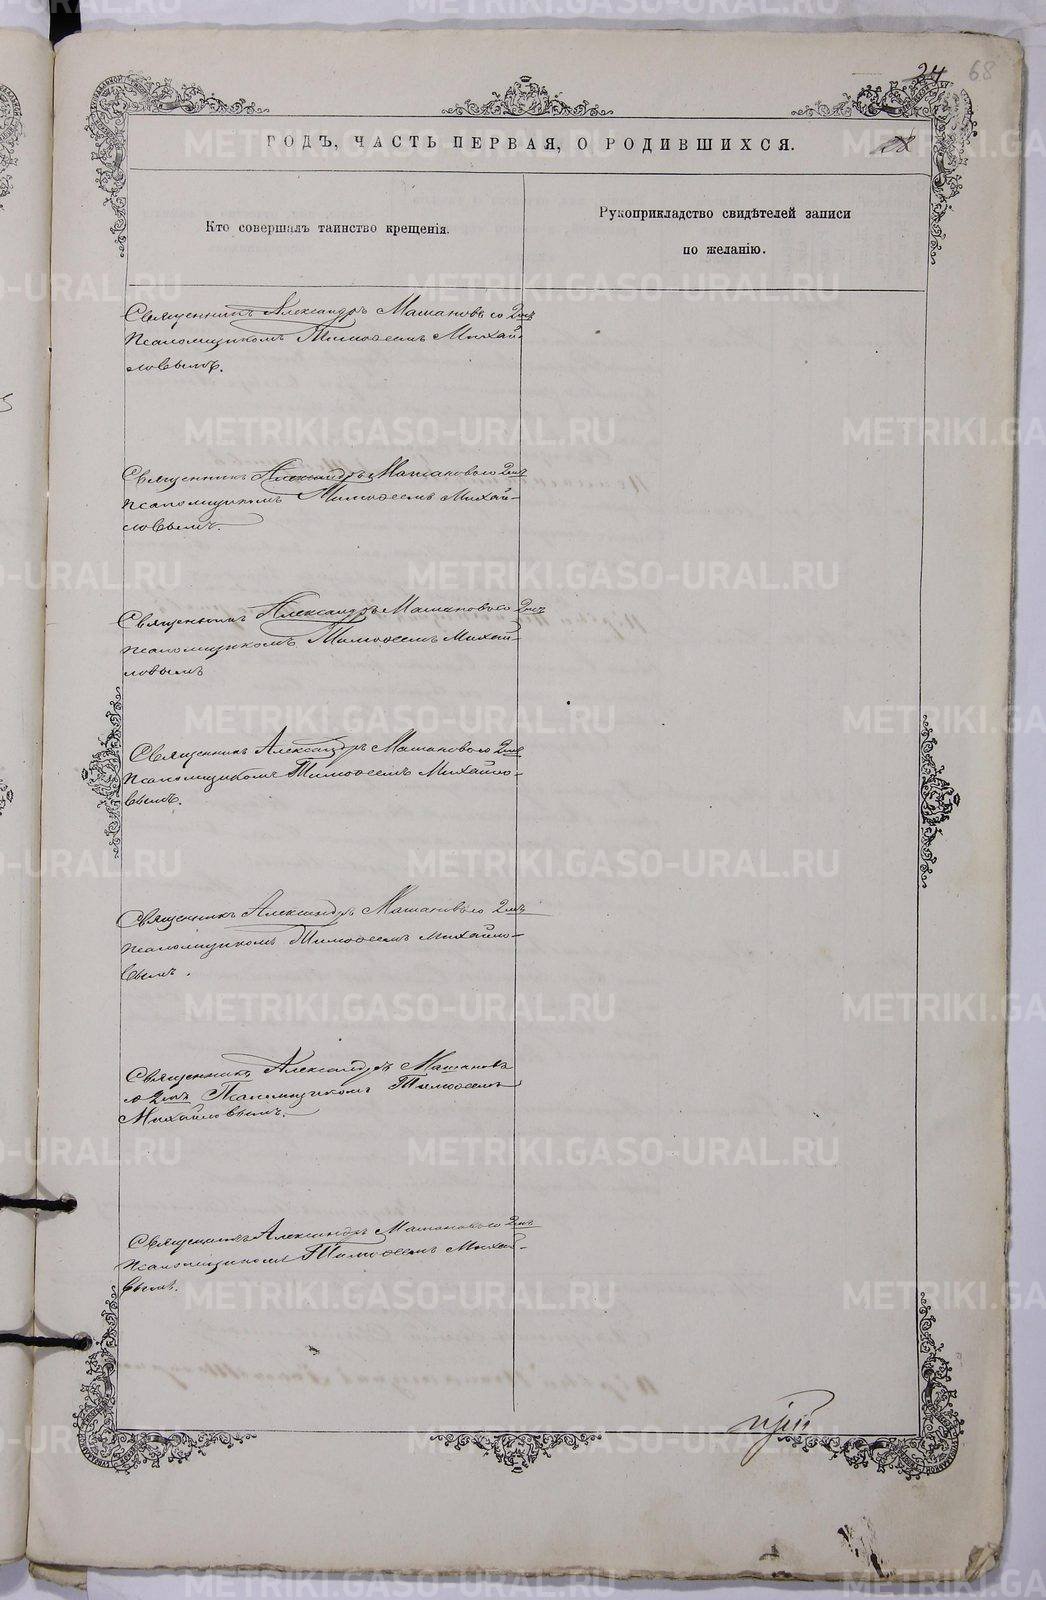 24 68
ГОДЪ, ЧАСТЬ ПЕРВАЯ, О РОДИВШИХСЯ.
Кто совершалъ таинство крещенія.
Рукоприкладство свидѣтелей записи
по желанію.
Священникъ Александръ Машановъ со 2мъ
Псаломщикомъ Тимоѳеемъ Михай-
ловымъ.
Священникъ Александръ Машановъ со 2мъ
псаломщикомъ Тимоѳеемъ Михай-
ловымъ.
Священникъ Александръ Машановъ со 2мъ
псаломщикомъ Тимоѳеемъ Михай-
ловымъ
Священникъ Александръ Машановъ со 2мъ
Псаломщикомъ Тимоѳеемъ Михайло-
вымъ.
Священникъ Александръ Машановъ со 2мъ
псаломщикомъ Тимоѳеемъ Михайло-
вымъ.
Священникъ Александръ Машановъ
со 2мъ Псаломщикомъ Тимоѳеемъ
Михайловымъ.
Священникъ Александръ Машановъ со 2мъ
Псаломщикомъ Тимоѳеемъ Михай-
вымъ.
METRIKI.GASO-URAL.RU